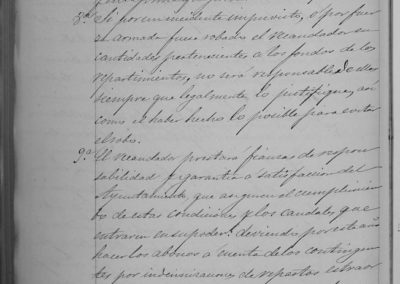 8.ª Si por un incidente imprevisto, o por fuer
za armada fuese robado el recaudador su
cantidades pertenecientes a los fondos de los
repartimientos, no será responsable de ellas
siempre que legalmente lo justifique, así
como el haber hecho lo posible para evitar
el robo.
9.ª El recaudador prestará fianzas de respon
sabilidad y garantía a satisfacción del
Ayuntamiento, que aseguren el cumplimien
to de estas condiciones y los caudales que
entraren en su poder: debiendo por este año
hacer los abonos a cuenta de los contingen
tes por indemnizaciones de repartos extraor